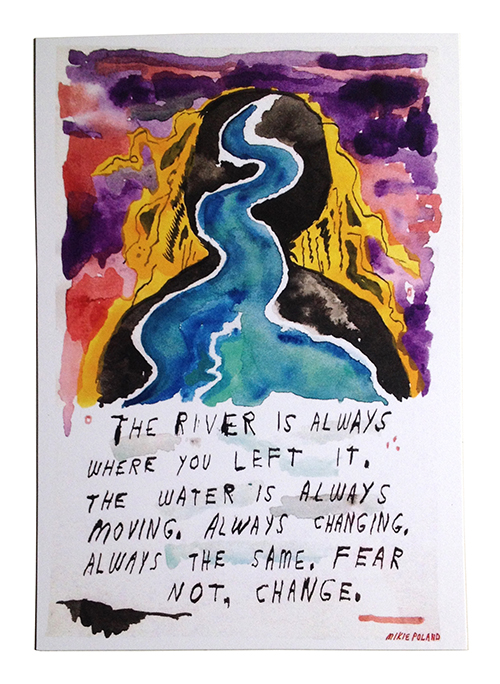 THE RIVER IS ALWAYS
WHERE YOU LEFT IT.
THE WATER IS ALWAYS
MOVING. ALWAYS CHANGING.
ALWAYS THE SAME. FEAR
NOT, CHANGE.
MIKIE POLAND